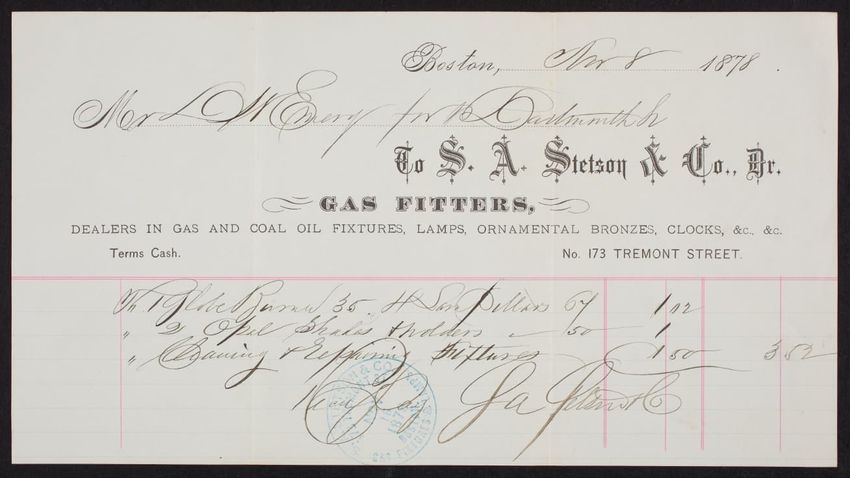 Boston, Nov 8 1878.
Mr L W Emery for Dartmouth St
To S. A. Stetson & Co., Dr.
GAS FITTERS,
DEALERS IN GAS AND COAL OIL FIXTURES, LAMPS, ORNAMENTAL BRONZES, CLOCKS, &c., &c.
Terms Cash. No. 173 TREMONT STREET.
To 1 Globe Burner 35 4 67 1 02
" 2 Opal Shades & holders 50 1
" Cleaning & repairing Fixtures 1 50 3 52
Rec'd Pay S A Stetson & Co